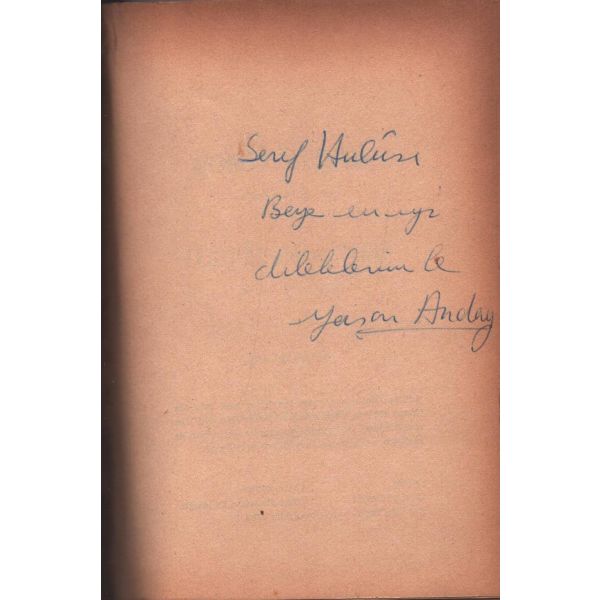 Şeref Hulûsi
Beye en iyi
dileklerimle
Yaşar Anday